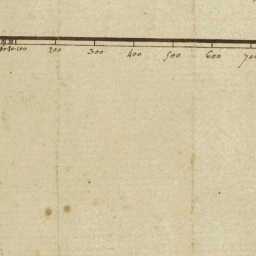 100 200 300 400 500 600 700